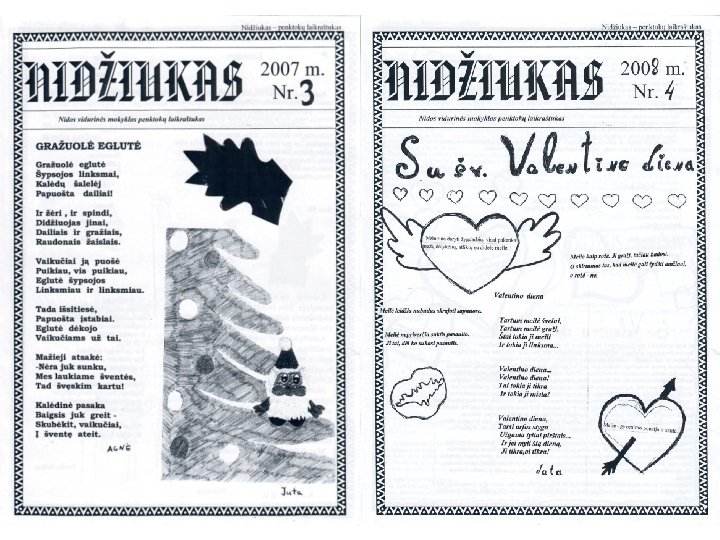 Nidžiukas – penktokų laikraštukas
NIDŽIUKAS
2007 m.
Nr. 3
Nidos vidurinės mokyklos penktokų laikraštukas
GRAŽUOLĖ EGLUTĖ
Gražuolė eglutė
Šypsojos linksmai,
Kalėdų šalelėj
Papuošta dailiai!
Ir žėri , ir spindi,
Didžiuojas jinai,
Dailiais ir gražiais,
Raudonais žaislais.
Vaikučiai ją puošė
Puikiau, vis puikiau,
Eglutė šypsojos
Linksmiau ir linksmiau.
Tada išsitiesė,
Papuošta įstabiai.
Eglutė dėkojo
Vaikučiams už tai.
Mažieji atsakė:
-Nėra juk sunku,
Mes laukiame šventės,
Tad švęskim kartu!
Kalėdinė pasaka
Baigsis juk greit -
Skubėkit, vaikučiai,
Į šventę ateit.
AGNĖ
Juta
Nidžiukas – penktokų laikraštukas
NIDŽIUKAS
2008 m.
Nr. 4
Nidos vidurinės mokyklos penktokų laikraštukas
Su šv. Valentino diena
Meilė kaip rožė. Ji graži, tačiau badosi.
O skirtumas tas, kad meilė gali tęstis amžinai,
o rožė - ne.
Valentino diena
Tartum meilė šviesi,
Tartum meilė graži.
Šiai tokia ji meili
Ir tokia ji linksma...
Valentino diena...
Valentino diena!
Tai tokia ji tikra
Ir tokia ji miela!
Valentino diena,
Tarsi
Užgauna tyliai pirštais...
Ir jei myli šią dieną,
Ji tikra,oi tikra!
Juta